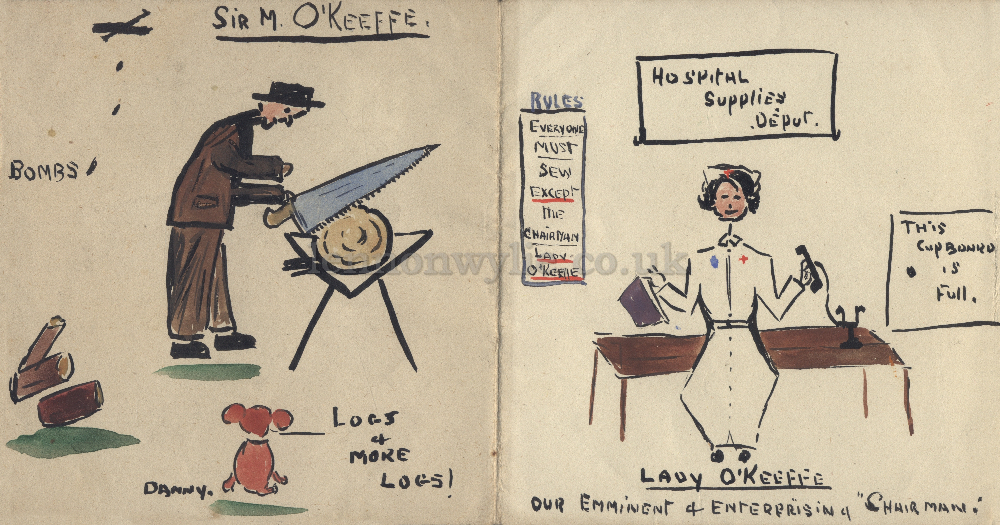 SIR M. O'KEEFFE.
BOMBS!
LOGS
&
MORE
LOGS!
DANNY.
HOSPITAL
SUPPLIES
DÉPOT.
RULES
EVERYONE
MUST
SEW
EXCEPT
THE
CHAIRMAN
LADY
O'KEEFFE
THIS
CUPBOARD
IS
FULL.
LADY O'KEEFFE
OUR EMMINENT & ENTERPRISING "CHAIRMAN."
londonwyllie.co.uk